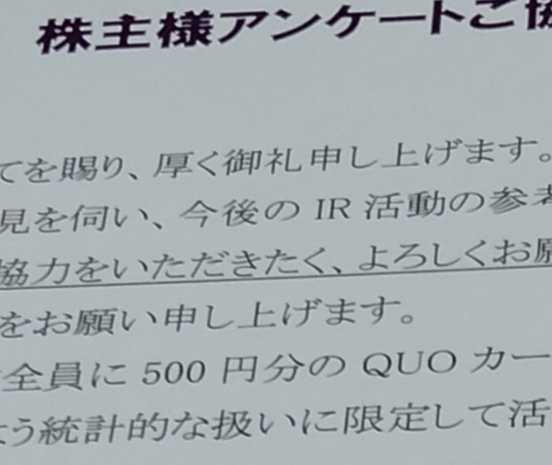 株主様アンケートご協
てを賜り、厚く御礼申し上げます。
見を伺い、今後の IR 活動の参考
協力をいただきたく、よろしくお願
をお願い申し上げます。
全員に 500 円分の QUO カー
よう統計的な扱いに限定して活